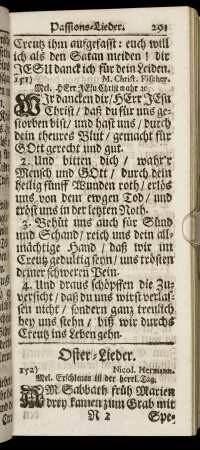 Passions-Lieder. 291
Creutz ihm aufgefasst: euch will
ich als den Satan meiden! dir
JESU danck ich für dein Leiden.
151) M. Christ. Vischer.
Mel. HErr JEsu Christ wahr ꝛc.
Wir dancken dir/ HErr JEsu
Christ/ daß du für uns ge-
storben bist/ und hast uns/ durch
dein theures Blut/ gemacht für
GOtt gerecht und gut.
2. Und bitten dich/ wahr'r
Mensch und GOtt/ durch dein
heilig fünff Wunden roth/ erlös
uns von dem ewgen Tod/ und
tröst uns in der letzten Noth.
3. Behüt uns auch für Sünd
und Schand/ reich uns dein all-
mächtige Hand/ daß wir im
Creutz gedultig seyn/ uns trösten
deiner schweren Pein.
4. Und draus schöpffen die Zu-
versicht/ daß du uns wirst verlas-
sen nicht/ sondern gantz treulich
bey uns stehn/ biß wir durchs
Creutz ins Leben gehn.
Oster-Lieder.
152) Nicol. Hermann.
Mel. Erschienen ist der herrl. Tag.
AM Sabbath früh Marien
drey kamen zum Grab mit
N 2 Spe-